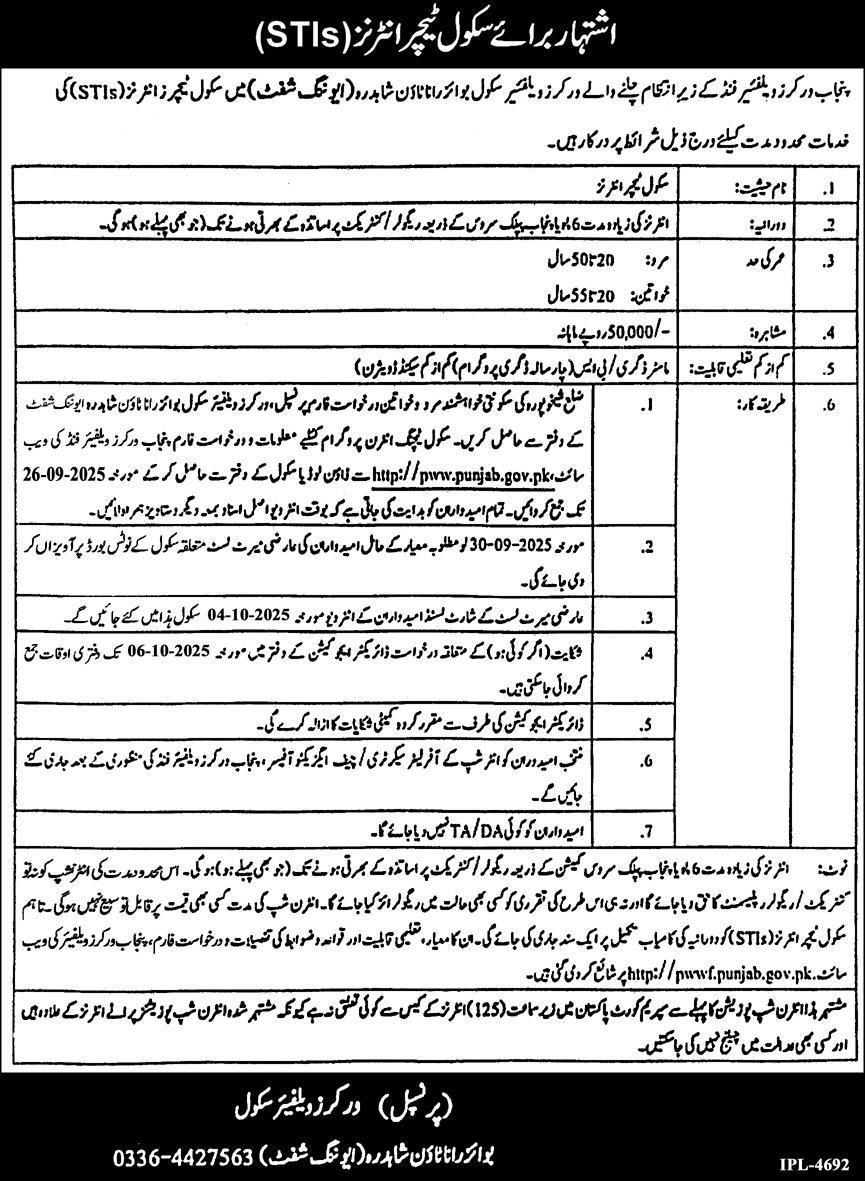 اشتہار برائے سکول ٹیچر انٹرنز (STIs)
پنجاب ورکرز ویلفیئر فنڈ کے زیر انتظام چلنے والے ورکرز ویلفیئر سکول بوائز رانا ٹاؤن شاہدرہ (ایوننگ شفٹ) میں سکول ٹیچرز انٹرنز (STIs) کی
خدمات محدود مدت کیلئے درج ذیل شرائط پر درکار ہیں۔
1. نام حیثیت: سکول ٹیچر انٹرنز
2. دورانیہ: انٹرنز کی زیادہ مدت 6 ماہ یا پنجاب پبلک سروس کے ذریعہ ریگولر/کنٹریکٹ پر اساتذہ کے بھرتی ہونے تک (جو بھی پہلے ہو) ہوگی۔
3. عمر کی حد مرد: 20 تا 50 سال
خواتین: 20 تا 55 سال
4. مشاہرہ: 50,000/- روپے ماہانہ
5. کم از کم تعلیمی قابلیت: ماسٹر ڈگری/بی ایس (چار سالہ ڈگری پروگرام) کم از کم سیکنڈ ڈویژن)
6. طریقہ کار: 1. ضلع شیخوپورہ کی سکونتی خواہشمند مرد و خواتین درخواست فارم پرنسپل، ورکرز ویلفیئر سکول بوائز رانا ٹاؤن شاہدرہ ایوننگ شفٹ
کے دفتر سے حاصل کریں۔ سکول ٹیچنگ انٹرن پروگرام کیلئے معلومات و درخواست فارم پنجاب ورکرز ویلفیئر فنڈ کی ویب
سائٹ، http://pww.punjab.gov.pk سے ڈاؤن لوڈ یا سکول کے دفتر سے حاصل کر کے مورخہ 26-09-2025
تک جمع کروائیں۔ تمام امیدواران کو ہدایت کی جاتی ہے کہ بوقت انٹرویو اصل اسناد بمعہ دیگر دستاویز ہمراہ لائیں۔
2. مورخہ 30-09-2025 کو مطلوبہ معیار کے حامل امیدواران کی عارضی میرٹ لسٹ متعلقہ سکول کے نوٹس بورڈ پر آویزاں کر
دی جائے گی۔
3. عارضی میرٹ لسٹ کے شارٹ لسٹڈ امیدواران کے انٹرویو مورخہ 04-10-2025 سکول ہذا میں کئے جائیں گے۔
4. شکایت (اگر کوئی ہو) کے متعلقہ درخواست ڈائریکٹر ایجوکیشن کے دفتر میں مورخہ 06-10-2025 تک دفتری اوقات جمع
کروائی جاسکتی ہیں۔
5. ڈائریکٹر ایجوکیشن کی طرف سے مقرر کردہ کمیٹی شکایات کا ازالہ کرے گی۔
6. منتخب امیدوران کو انٹر شپ کے آفر لیٹر سیکرٹری/چیف ایگزیکٹو آفیسر، پنجاب ورکرز ویلفیئر فنڈ کی منظوری کے بعد جاری کئے
جائیں گے۔
7. امیدواران کو کوئی TA/DA نہیں دیا جائے گا۔
نوٹ: انٹرنز کی زیادہ مدت 6 ماہ یا پنجاب پبلک سروس کمیشن کے ذریعہ ریگولر/کنٹریکٹ پر اساتذہ کے بھرتی ہونے تک (جو بھی پہلے ہو) ہوگی۔ اس محدود مدت کی انٹرنشپ کو نہ تو
کنٹریکٹ/ریگولر ریپلیسمنٹ کا حق دیا جائے گا اور نہ ہی اس طرح کی تقرری کو کسی بھی حالت میں ریگولرائز کیا جائے گا۔ انٹرن شپ کی مدت کسی بھی قیمت پر قابل توسیع نہیں ہوگی۔ تاہم
سکول ٹیچر انٹرنز (STIs) کو دورانیہ کی کامیاب تکمیل پر ایک سند جاری کی جائے گی۔ ان کا معیار، تعلیمی قابلیت اور قواعد و ضوابط کی تفصیلات و درخواست فارم، پنجاب ورکرز ویلفیئر کی ویب
سائٹ http://pwwf.punjab.gov.pk. پر شائع کر دی گئی ہیں۔
مشتہر ہذا انٹرن شپ پوزیشن کا پہلے سے سپریم کورٹ پاکستان میں زیر سماعت (125) انٹرنز کے کیس سے کوئی تعلق نہ ہے کیونکہ مشتہر شدہ انٹرن شپ پوزیشنز پرانے انٹرنز کے علاوہ ہیں
اور کسی بھی عدالت میں چیلنج نہیں کی جاسکتیں۔
(پرنسپل) ورکرز ویلفیئر سکول
بوائز رانا ٹاؤن شاہدرہ (ایوننگ شفٹ) 0336-4427563
IPL-4692